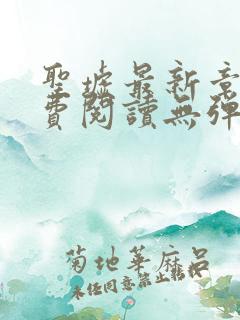 聖墟最新章
費閱讀無彈
菊地華麻呂
未经同意禁止转载